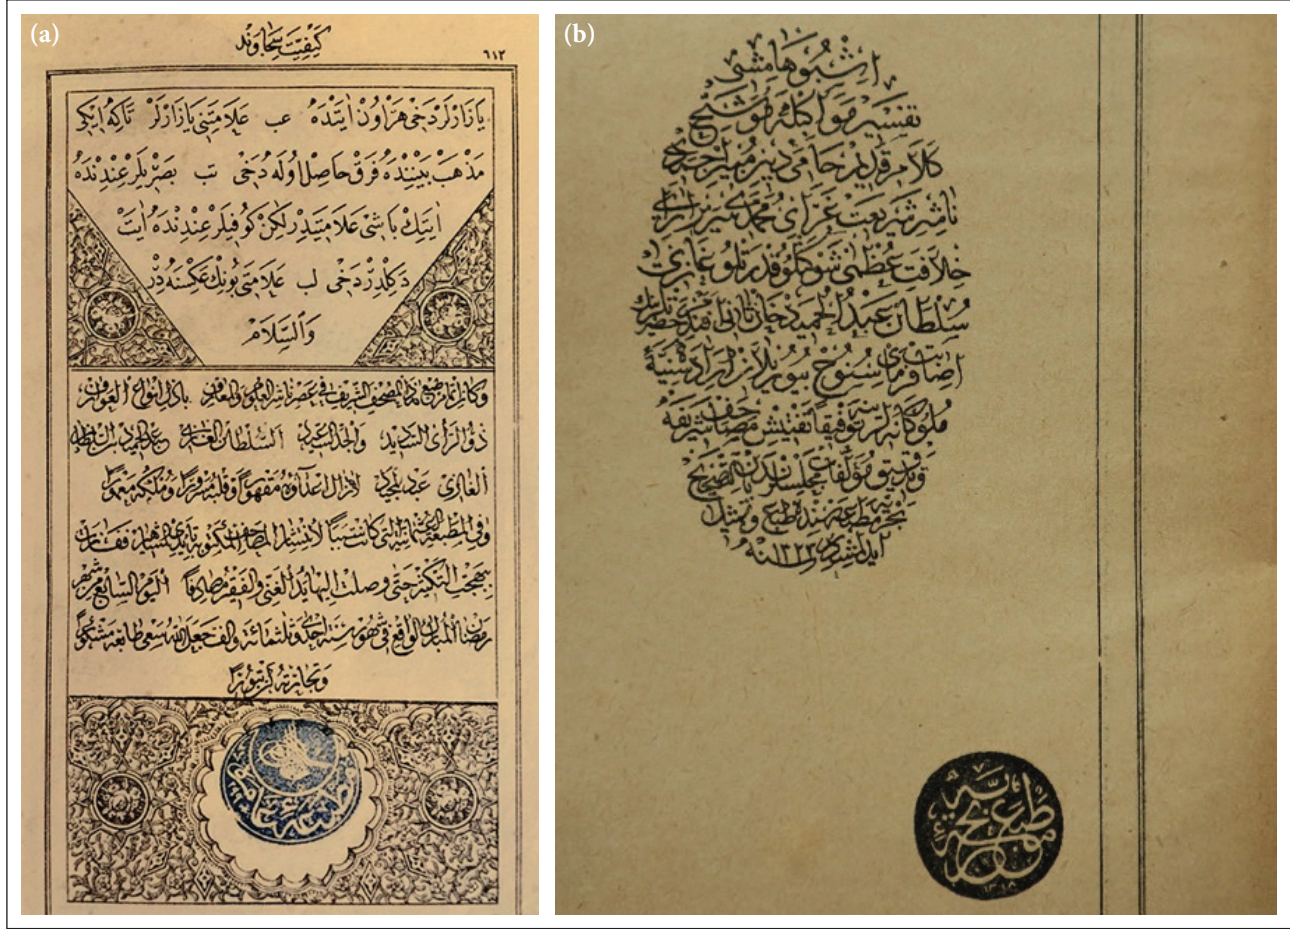 (a)
كیفیت سجاوند
٦١٢
یازارلر دخی هر اون ایتده عب علامتنی یازارلر تاكه ایكی
مذهب بیننده فرق حاصل اوله دخی تب بصریلر عندنده
ایتك باشی علامتیدر لكن كوفیلر عندنده ایت
دكلدر دخی لب علامتی بونك عكسنه در
والسلام
وكان اتمام طبع هذا المصحف الشریف فی عصر ناشر العلوم والمعارف باذل انواع العوارف
ذو الرأی السدید والجد السلطان الغازی عبد الحمید ابن السلطان
الغازی عبد المجید لازال اعداؤه مقهورا وقلبه مسرورا وملكه معمورا
وفی المطبعة العثمانیة التی كانت سببا لانتشار المصاحف المكتوبة بایدی المشاهیر
حتی وصلت الیها ید الغنی والفقیر مصادفا الیوم السابع من شهر
رمضان المبارك الواقع فی شهور سنة احدی وثلثمائة والف جعل الله سعی طابعه مشكورا
وتجارته لن تبورا
مطبعه عثمانیه
(b)
اشبو هامشی
تفسیر مواكبله موشح
كلام قدیم حامی دین مبین احمدی
ناشر شریعت غرای محمدی سریر آرای
خلافت عظمی شوكتلو قدرتلو غازی
سلطان عبد الحمید خان ثانی افندمز حضرتلرینك
سنوح بیوریلان اراده سنیه
ملوكانه لرینه توفیقا تفتیش مصاحف شریفه
وتدقیق مؤلفات مجلسلرندن بالتصحیح
بحریه مطبعه سنده طبع وتمثیل
ایدلمشدر سنه ١٣٢٣
مطبعه بحریه